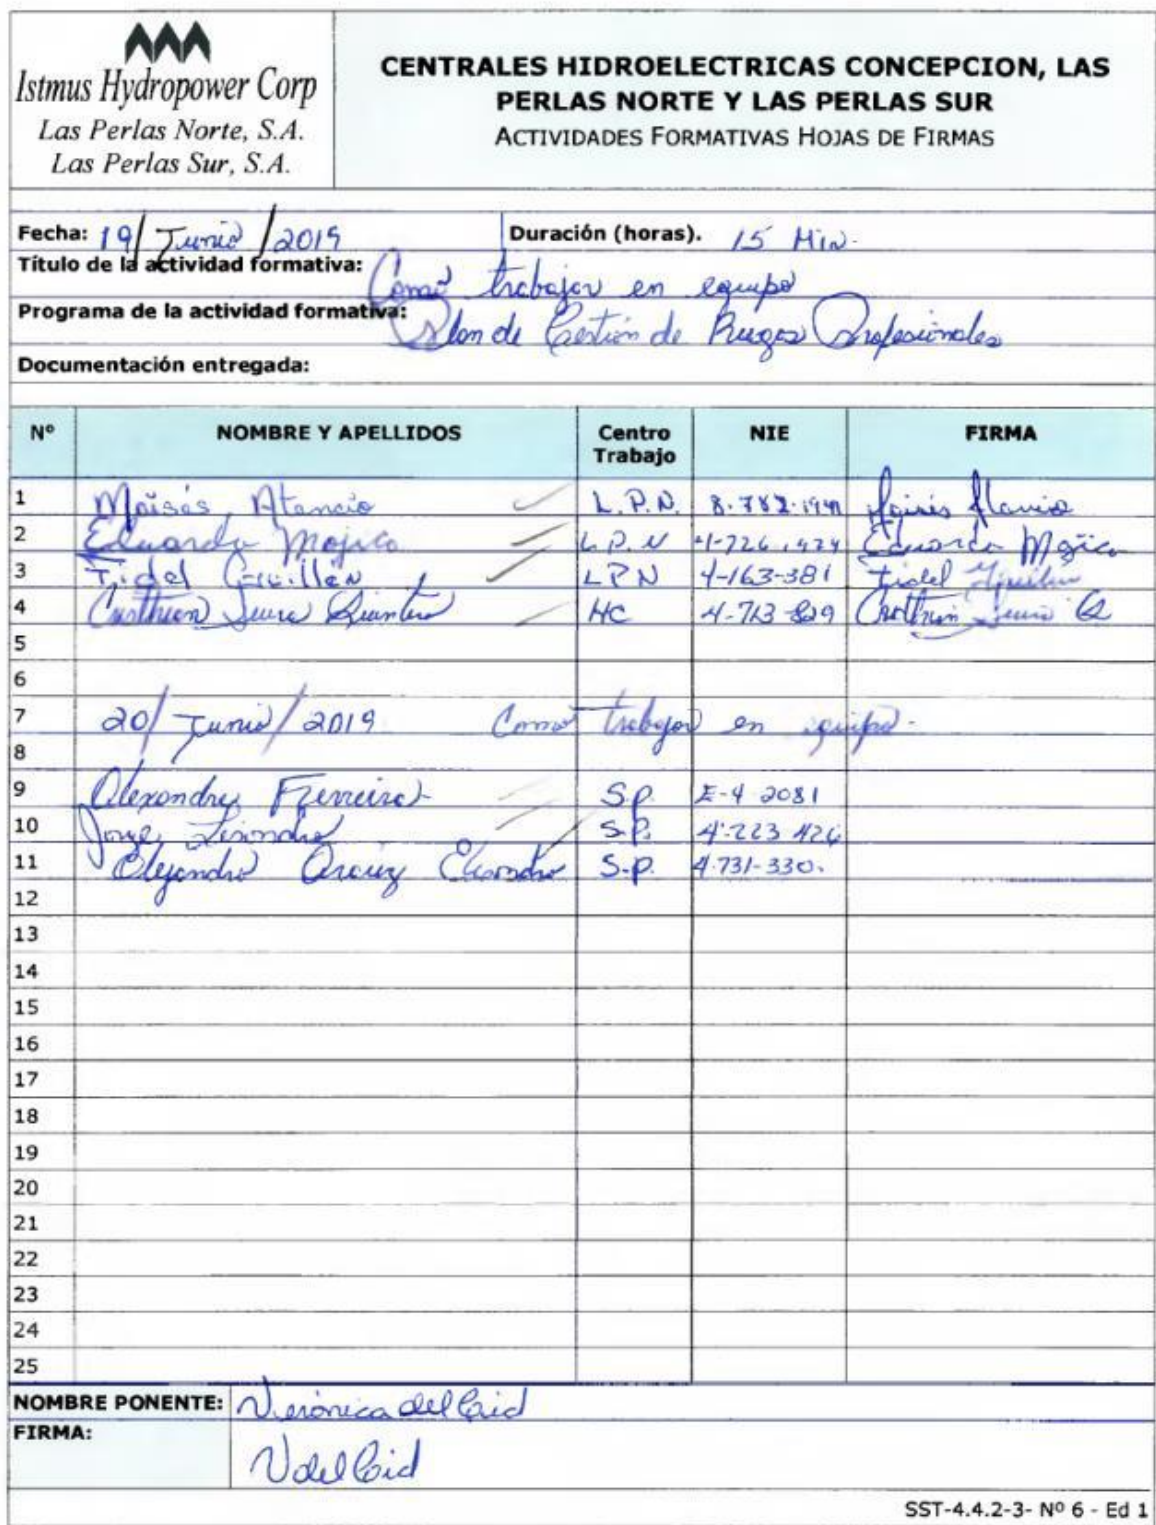 Istmus Hydropower Corp
Las Perlas Norte, S.A.
Las Perlas Sur, S.A.
CENTRALES HIDROELECTRICAS CONCEPCION, LAS
PERLAS NORTE Y LAS PERLAS SUR
ACTIVIDADES FORMATIVAS HOJAS DE FIRMAS
Fecha: 19/Junio/2019 Duración (horas). 15 Min.
Título de la actividad formativa: Como trabajar en equipo
Programa de la actividad formativa: Plan de Gestión de Riesgos Profesionales
Documentación entregada:
Nº NOMBRE Y APELLIDOS Centro Trabajo NIE FIRMA
1 Moisés Atencio L.P.N. 8-782-
2 Eduardo Mojica L.P.N Eduardo Mojica
3 Fidel LPN 4-163-381 Fidel
4 HC 4-713-829
5
6
7 20/Junio/2019 Como trabajar en equipo.
8
9 Alexandre Ferreira S.P. E-4 2081
10 Jorge S.P. 4-223 426
11 Alejandro Arauz S.P. 4-731-330.
12
13
14
15
16
17
18
19
20
21
22
23
24
25
NOMBRE PONENTE: Verónica del Cid
FIRMA: V del Cid
SST-4.4.2-3- Nº 6 - Ed 1